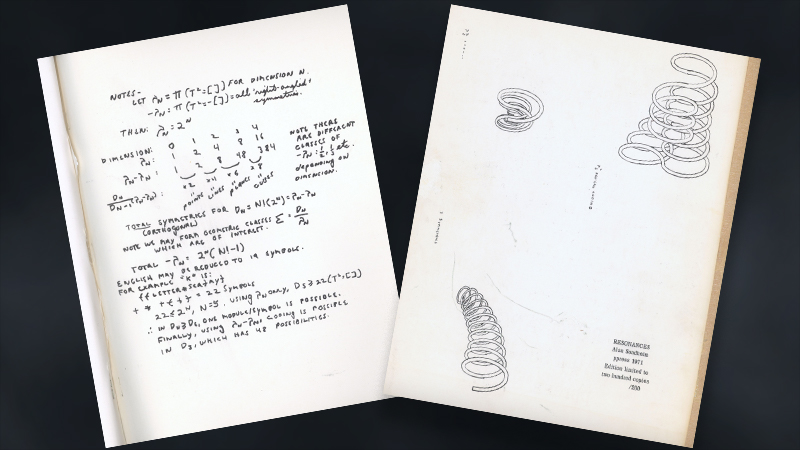 NOTES-
LET P̃N = π(T²=[]) FOR DIMENSION N.
-P̃N = π(T²=-[]) = all right-angled + symmetries.
THEN: P̃N = 2^N
DIMENSION: 0 1 2 3 4
P̃N: 1 2 4 8 16
P̃N-P̃N: 1 2 8 48 384
×2 ×4 ×6 ×8
"POINTS" "LINES" "PLANES"
NOTE THERE
ARE DIFFERENT
CLASSES OF
depending on
DIMENSION.
TOTAL SYMMETRIES FOR DN = N!(2^N) = P̃N-P̃N
(ORTHOGONAL)
NOTE WE MAY FORM GEOMETRIC CLASSES Σ = DN/P̃N
WHICH ARE OF INTEREST.
TOTAL -P̃N = 2^N(N!-1)
ENGLISH MAY BE REDUCED TO 19 SYMBOLS.
FOR EXAMPLE "K" IS:
= 22 SYMBOLS
22 ≤ 2^N, N=5. USING P̃N ONLY, D5 ≥ 22(T²=[])
∴ IN DN≥D5, ONE MODULE/SYMBOL IS POSSIBLE.
FINALLY, USING P̃N-P̃N, CODING IS POSSIBLE
IN D3, WHICH HAS 48 POSSIBILITIES.
RESONANCES
Alan Sondheim
ppress 1971
Edition limited to
two hundred copies
/200